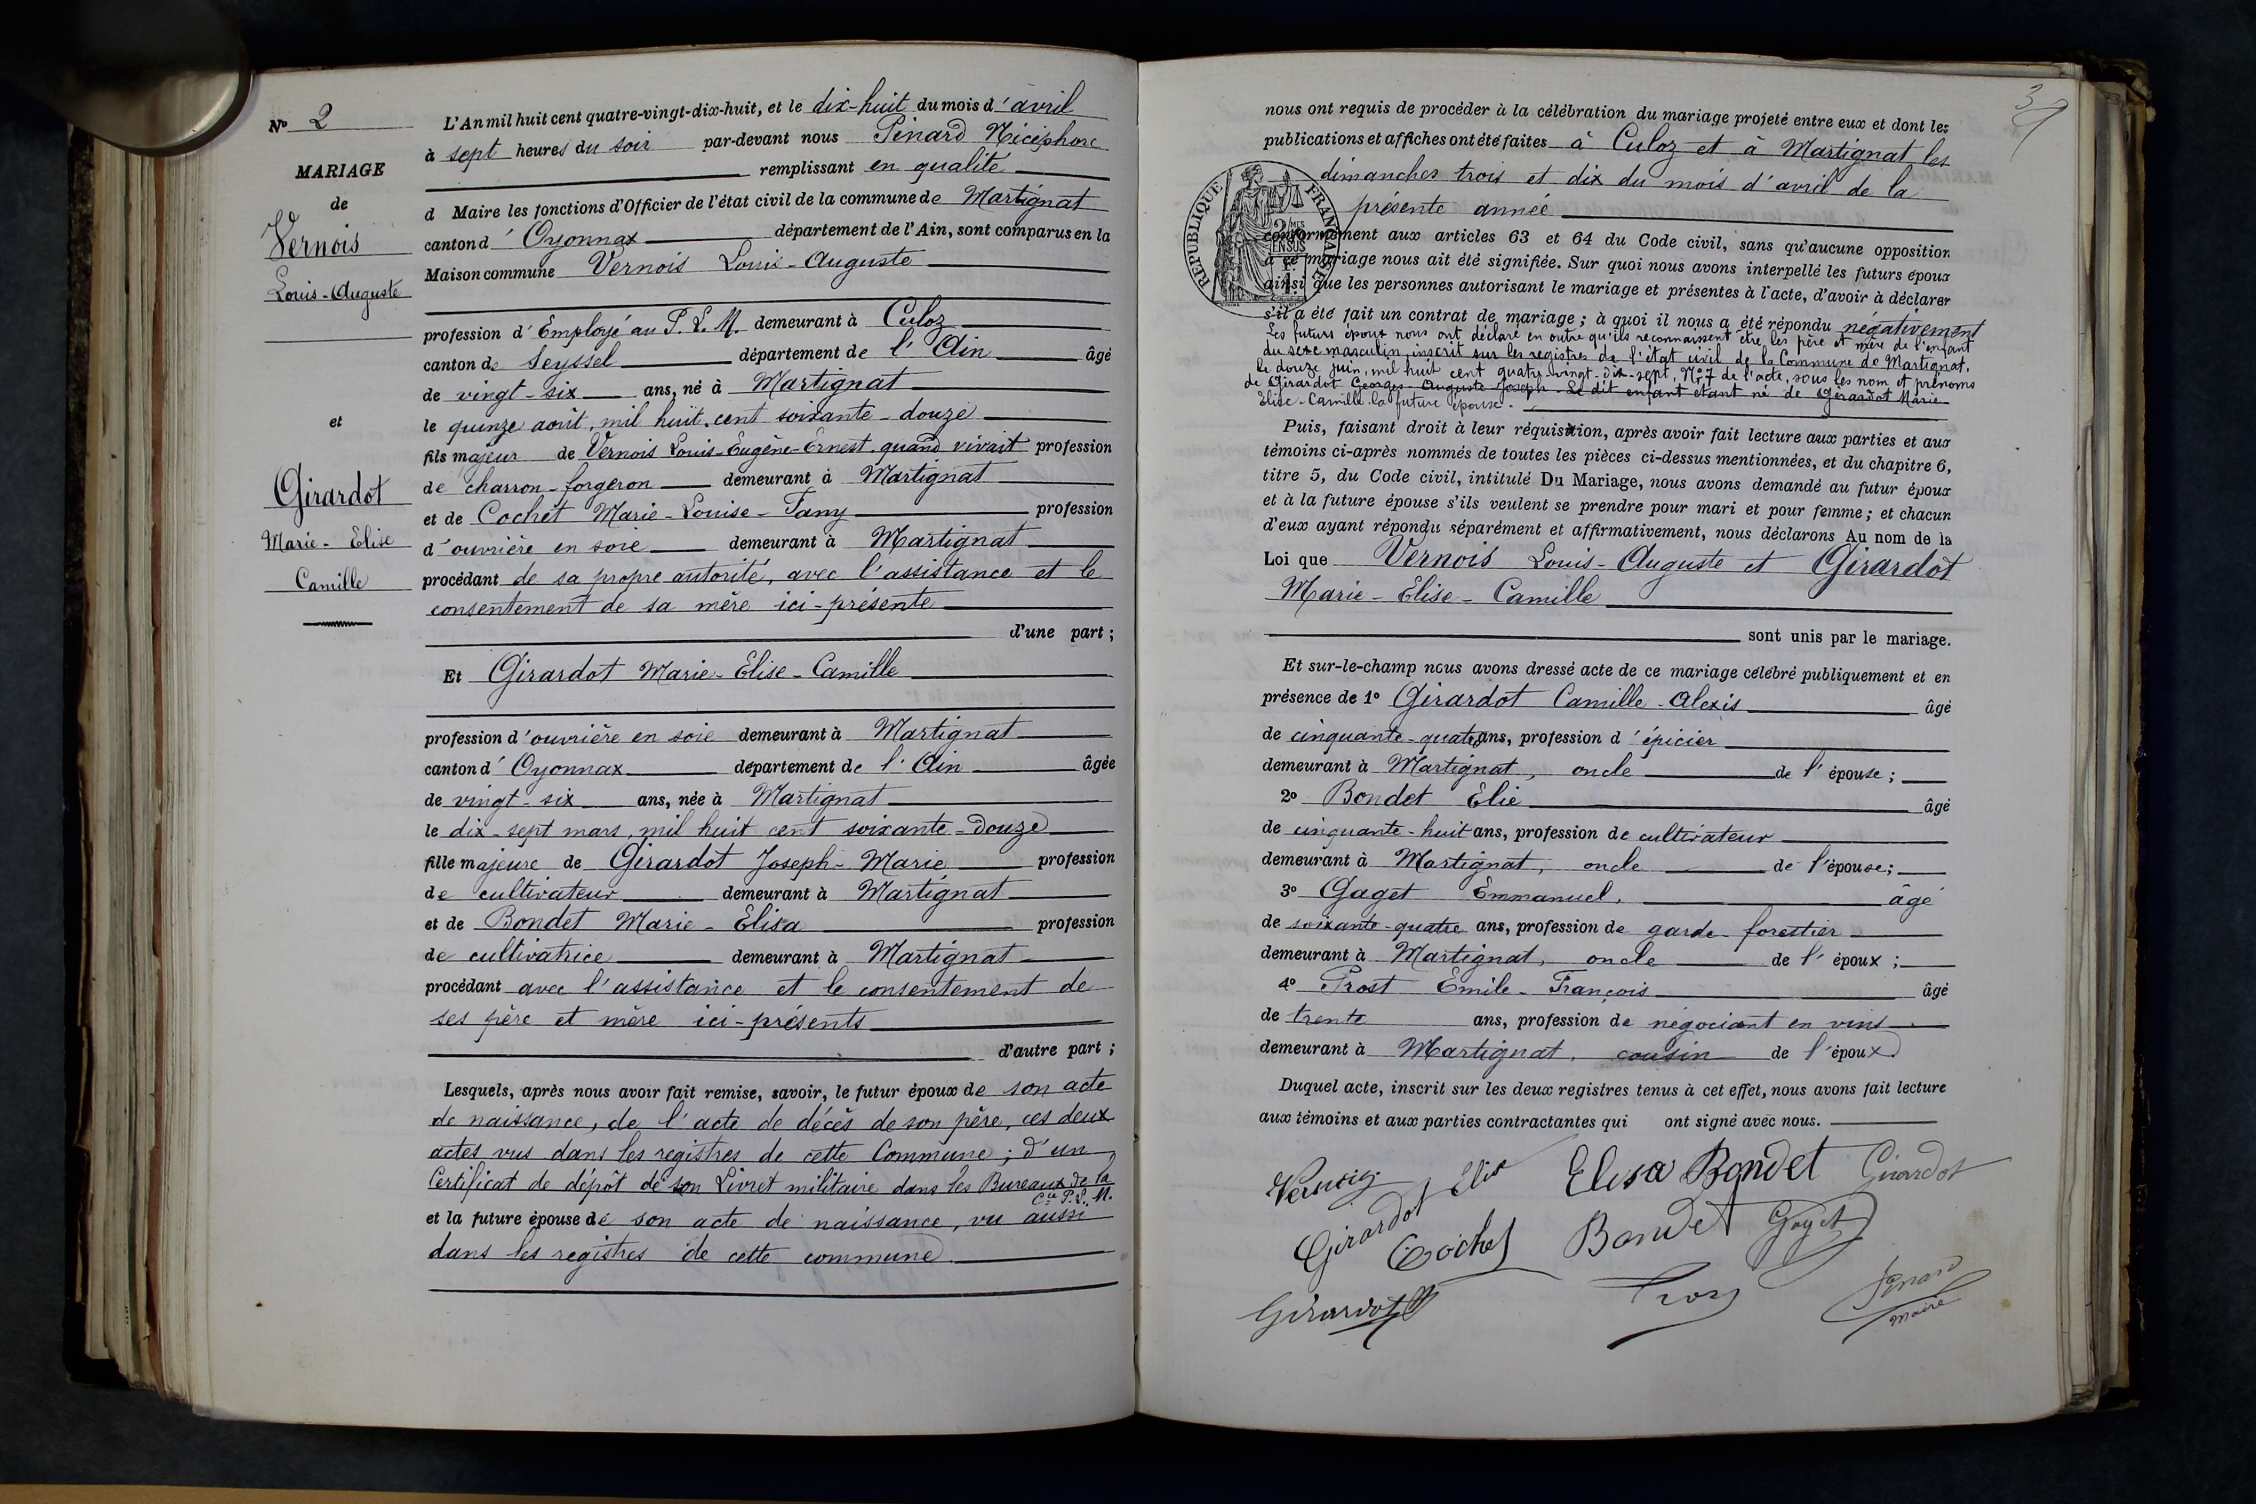 N° 2
MARIAGE
de
Vernois
Louis-Auguste
et
Girardot
Marie-Elise
Camille
L'An mil huit cent quatre-vingt-dix-huit, et le dix-huit du mois d'avril
à sept heures du soir par-devant nous Pénard Nicéphore
remplissant en qualité
d Maire les fonctions d'Officier de l'état civil de la commune de Martignat
canton d'Oyonnax département de l'Ain, sont comparus en la
Maison commune Vernois Louis-Auguste
profession d'Employé au P.L.M. demeurant à Culoz
canton de Seyssel département de l'Ain âgé
de vingt-six ans, né à Martignat
le quinze août, mil huit cent soixante-douze
fils majeur de Vernois Louis-Eugène-Ernest quand vivait profession
de charron-forgeron demeurant à Martignat
et de Cochet Marie-Louise-Fany profession
d'ouvrière en soie demeurant à Martignat
procédant de sa propre autorité, avec l'assistance et le
consentement de sa mère ici-présente
d'une part ;
Et Girardot Marie-Elise-Camille
profession d'ouvrière en soie demeurant à Martignat
canton d'Oyonnax département de l'Ain âgée
de vingt-six ans, née à Martignat
le dix-sept mars, mil huit cent soixante-douze
fille majeure de Girardot Joseph-Marie profession
de cultivateur demeurant à Martignat
et de Bondet Marie-Elisa profession
de cultivatrice demeurant à Martignat
procédant avec l'assistance et le consentement de
ses père et mère ici-présents
d'autre part ;
Lesquels, après nous avoir fait remise, savoir, le futur époux de son acte
de naissance, de l'acte de décès de son père, ces deux
actes vus dans les registres de cette Commune ; d'un
Certificat de dépôt de son Livret militaire dans les Bureaux de la
Cie P.L.M.
et la future épouse de son acte de naissance, vu aussi
dans les registres de cette commune
nous ont requis de procéder à la célébration du mariage projeté entre eux et dont les
publications et affiches ont été faites à Culoz et à Martignat les
dimanches trois et dix du mois d'avril de la
présente année
RÉPUBLIQUE FRANÇAISE
conformément aux articles 63 et 64 du Code civil, sans qu'aucune opposition
à ce mariage nous ait été signifiée. Sur quoi nous avons interpellé les futurs époux
ainsi que les personnes autorisant le mariage et présentes à l'acte, d'avoir à déclarer
s'il a été fait un contrat de mariage ; à quoi il nous a été répondu négativement
Les futurs époux nous ont déclaré en outre qu'ils reconnaissent être les père et mère de l'enfant
du sexe masculin, inscrit sur les registres de l'état civil de la Commune de Martignat,
le douze juin, mil huit cent quatre-vingt-dix-sept, N° 7 de l'acte, sous les nom et prénoms
de Girardot Georges-Auguste-Joseph. Le dit enfant étant né de Girardot Marie
Elise-Camille la future épouse.
Puis, faisant droit à leur réquisition, après avoir fait lecture aux parties et aux
témoins ci-après nommés de toutes les pièces ci-dessus mentionnées, et du chapitre 6,
titre 5, du Code civil, intitulé Du Mariage, nous avons demandé au futur époux
et à la future épouse s'ils veulent se prendre pour mari et pour femme ; et chacun
d'eux ayant répondu séparément et affirmativement, nous déclarons Au nom de la
Loi que Vernois Louis-Auguste et Girardot
Marie-Elise-Camille
sont unis par le mariage.
Et sur-le-champ nous avons dressé acte de ce mariage célébré publiquement et en
présence de 1° Girardot Camille-Alexis âgé
de cinquante-quatre ans, profession d'épicier
demeurant à Martignat, oncle de l'épouse ;
2° Bondet Elie âgé
de cinquante-huit ans, profession de cultivateur
demeurant à Martignat, oncle de l'épouse ;
3° Gaget Emmanuel. âgé
de soixante-quatre ans, profession de garde-forestier
demeurant à Martignat, oncle de l'époux ;
4° Prost Emile-François âgé
de trente ans, profession de négociant en vins
demeurant à Martignat, cousin de l'époux
Duquel acte, inscrit sur les deux registres tenus à cet effet, nous avons fait lecture
aux témoins et aux parties contractantes qui ont signé avec nous.
Vernois Elisa Bondet Girardot
Girardot Elise Cochet Bondet Gaget
Girardot Prost Pénard
Maire